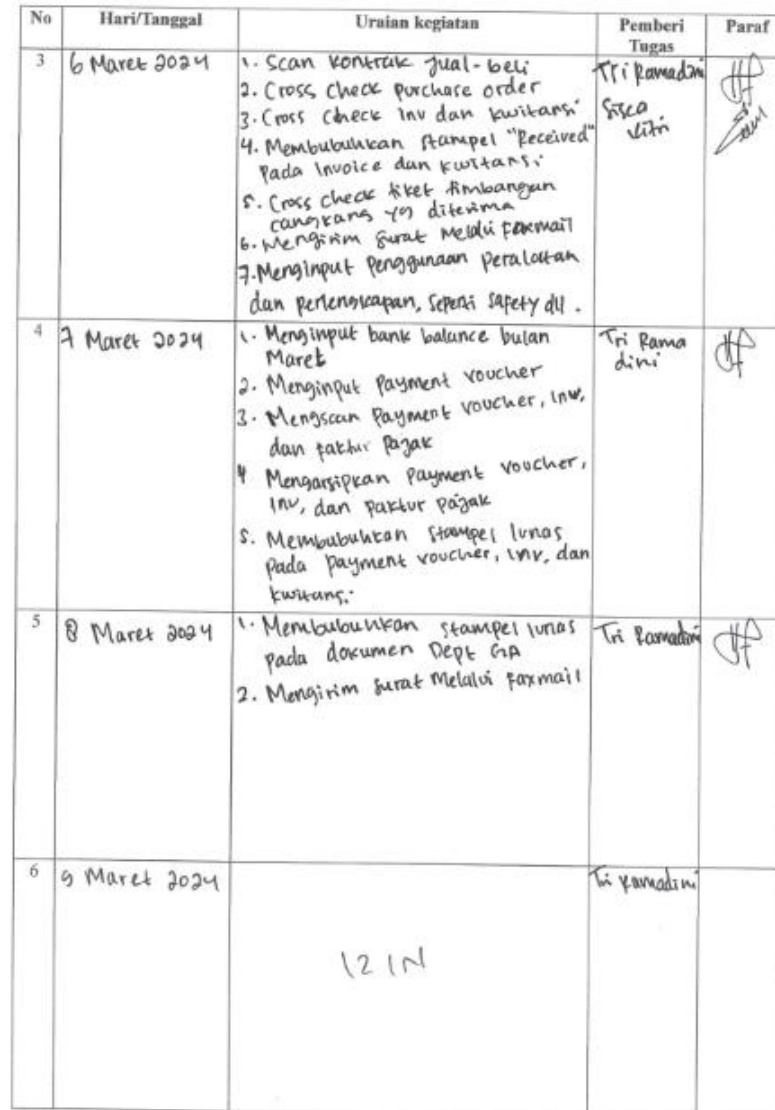 No Hari/Tanggal Uraian kegiatan Pemberi Tugas Paraf
3 6 Maret 2024
1. Scan kontrak Jual-beli
2. Cross Check purchase order
3. Cross Check Inv dan kwitansi
4. Membubuhkan stampel "Received"
pada Invoice dan kwitansi
5. Cross check tiket timbangan
cangkang yg diterima
6. Mengirim surat Melalui Foxmail
7. Menginput penggunaan peralatan
dan perlengkapan, seperti safety dll.
Tri Ramadini
Sisca
Vitri
4 7 Maret 2024
1. Menginput bank balance bulan
Maret
2. Menginput Payment voucher
3. Mengscan Payment voucher, Inv,
dan faktur Pajak
4 Mengarsipkan Payment voucher,
Inv, dan Faktur pajak
5. Membubuhkan stampel lunas
pada payment voucher, Inv, dan
kwitansi
Tri Rama
dini
5 8 Maret 2024
1. Membubuhkan stampel lunas
pada dokumen Dept GA
2. Mengirim surat Melalui Foxmail
Tri Ramadini
6 9 Maret 2024
IZIN
Tri Ramadini